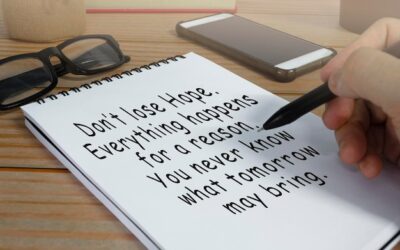 Don't lose Hope.
Everything happens
for a reason...
You never know
what tomorrow
may bring.